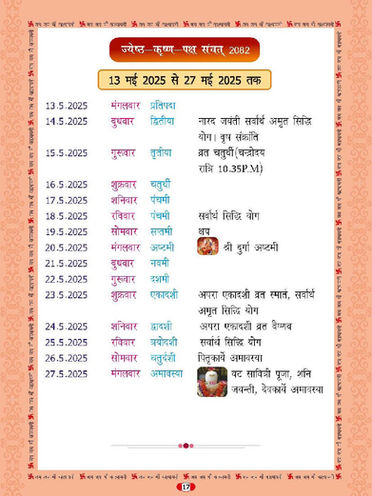 ज्येष्ठ–कृष्ण–पक्ष संवत् 2082
13 मई 2025 से 27 मई 2025 तक
13.5.2025 मंगलवार प्रतिपदा
14.5.2025 बुधवार द्वितीया नारद जयंती सर्वार्थ अमृत सिद्धि
योग। वृष संक्रांति
15.5.2025 गुरूवार तृतीया व्रत चतुर्थी (चन्द्रोदय
रात्रि 10.35P.M)
16.5.2025 शुक्रवार चतुर्थी
17.5.2025 शनिवार पंचमी
18.5.2025 रविवार पंचमी सर्वार्थ सिद्धि योग
19.5.2025 सोमवार सप्तमी क्षय
20.5.2025 मंगलवार अष्टमी श्री दुर्गा अष्टमी
21.5.2025 बुधवार नवमी
22.5.2025 गुरूवार दशमी
23.5.2025 शुक्रवार एकादशी अपरा एकादशी व्रत स्मातं, सर्वार्थ
अमृत सिद्धि योग
24.5.2025 शनिवार द्वादशी अपरा एकादशी व्रत वैष्णव
25.5.2025 रविवार त्रयोदशी सर्वार्थ सिद्धि योग
26.5.2025 सोमवार चतुर्दशी पितृकार्ये अमावस्या
27.5.2025 मंगलवार अमावस्या वट सावित्री पूजा, शनि
जयन्ती, देवकार्ये अमावस्या
17